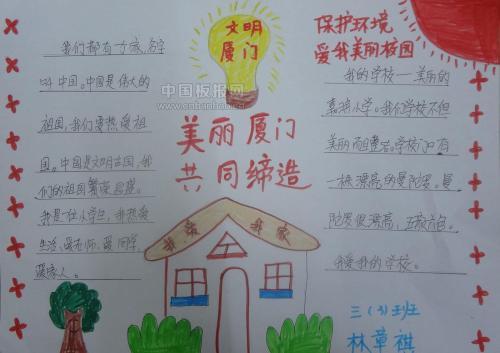 文明
厦门
保护环境
爱我美丽校园
美丽厦门
共同缔造
我爱我家
我们都有一个家,名字
叫中国。中国是伟大的
祖国,我们要热爱祖
国。中国是文明古国,我
们的祖国繁荣
我是一位小学生,我热爱
生活、爱老师、爱同学、
爱家人。
我的学校——美丽的
小学。我们学校不但
美丽而且
一棵漂亮的曼陀罗。曼
陀罗很漂亮,
我爱我的学校。
三(3)班
林章祺
中国板报网
www.banbao.cn